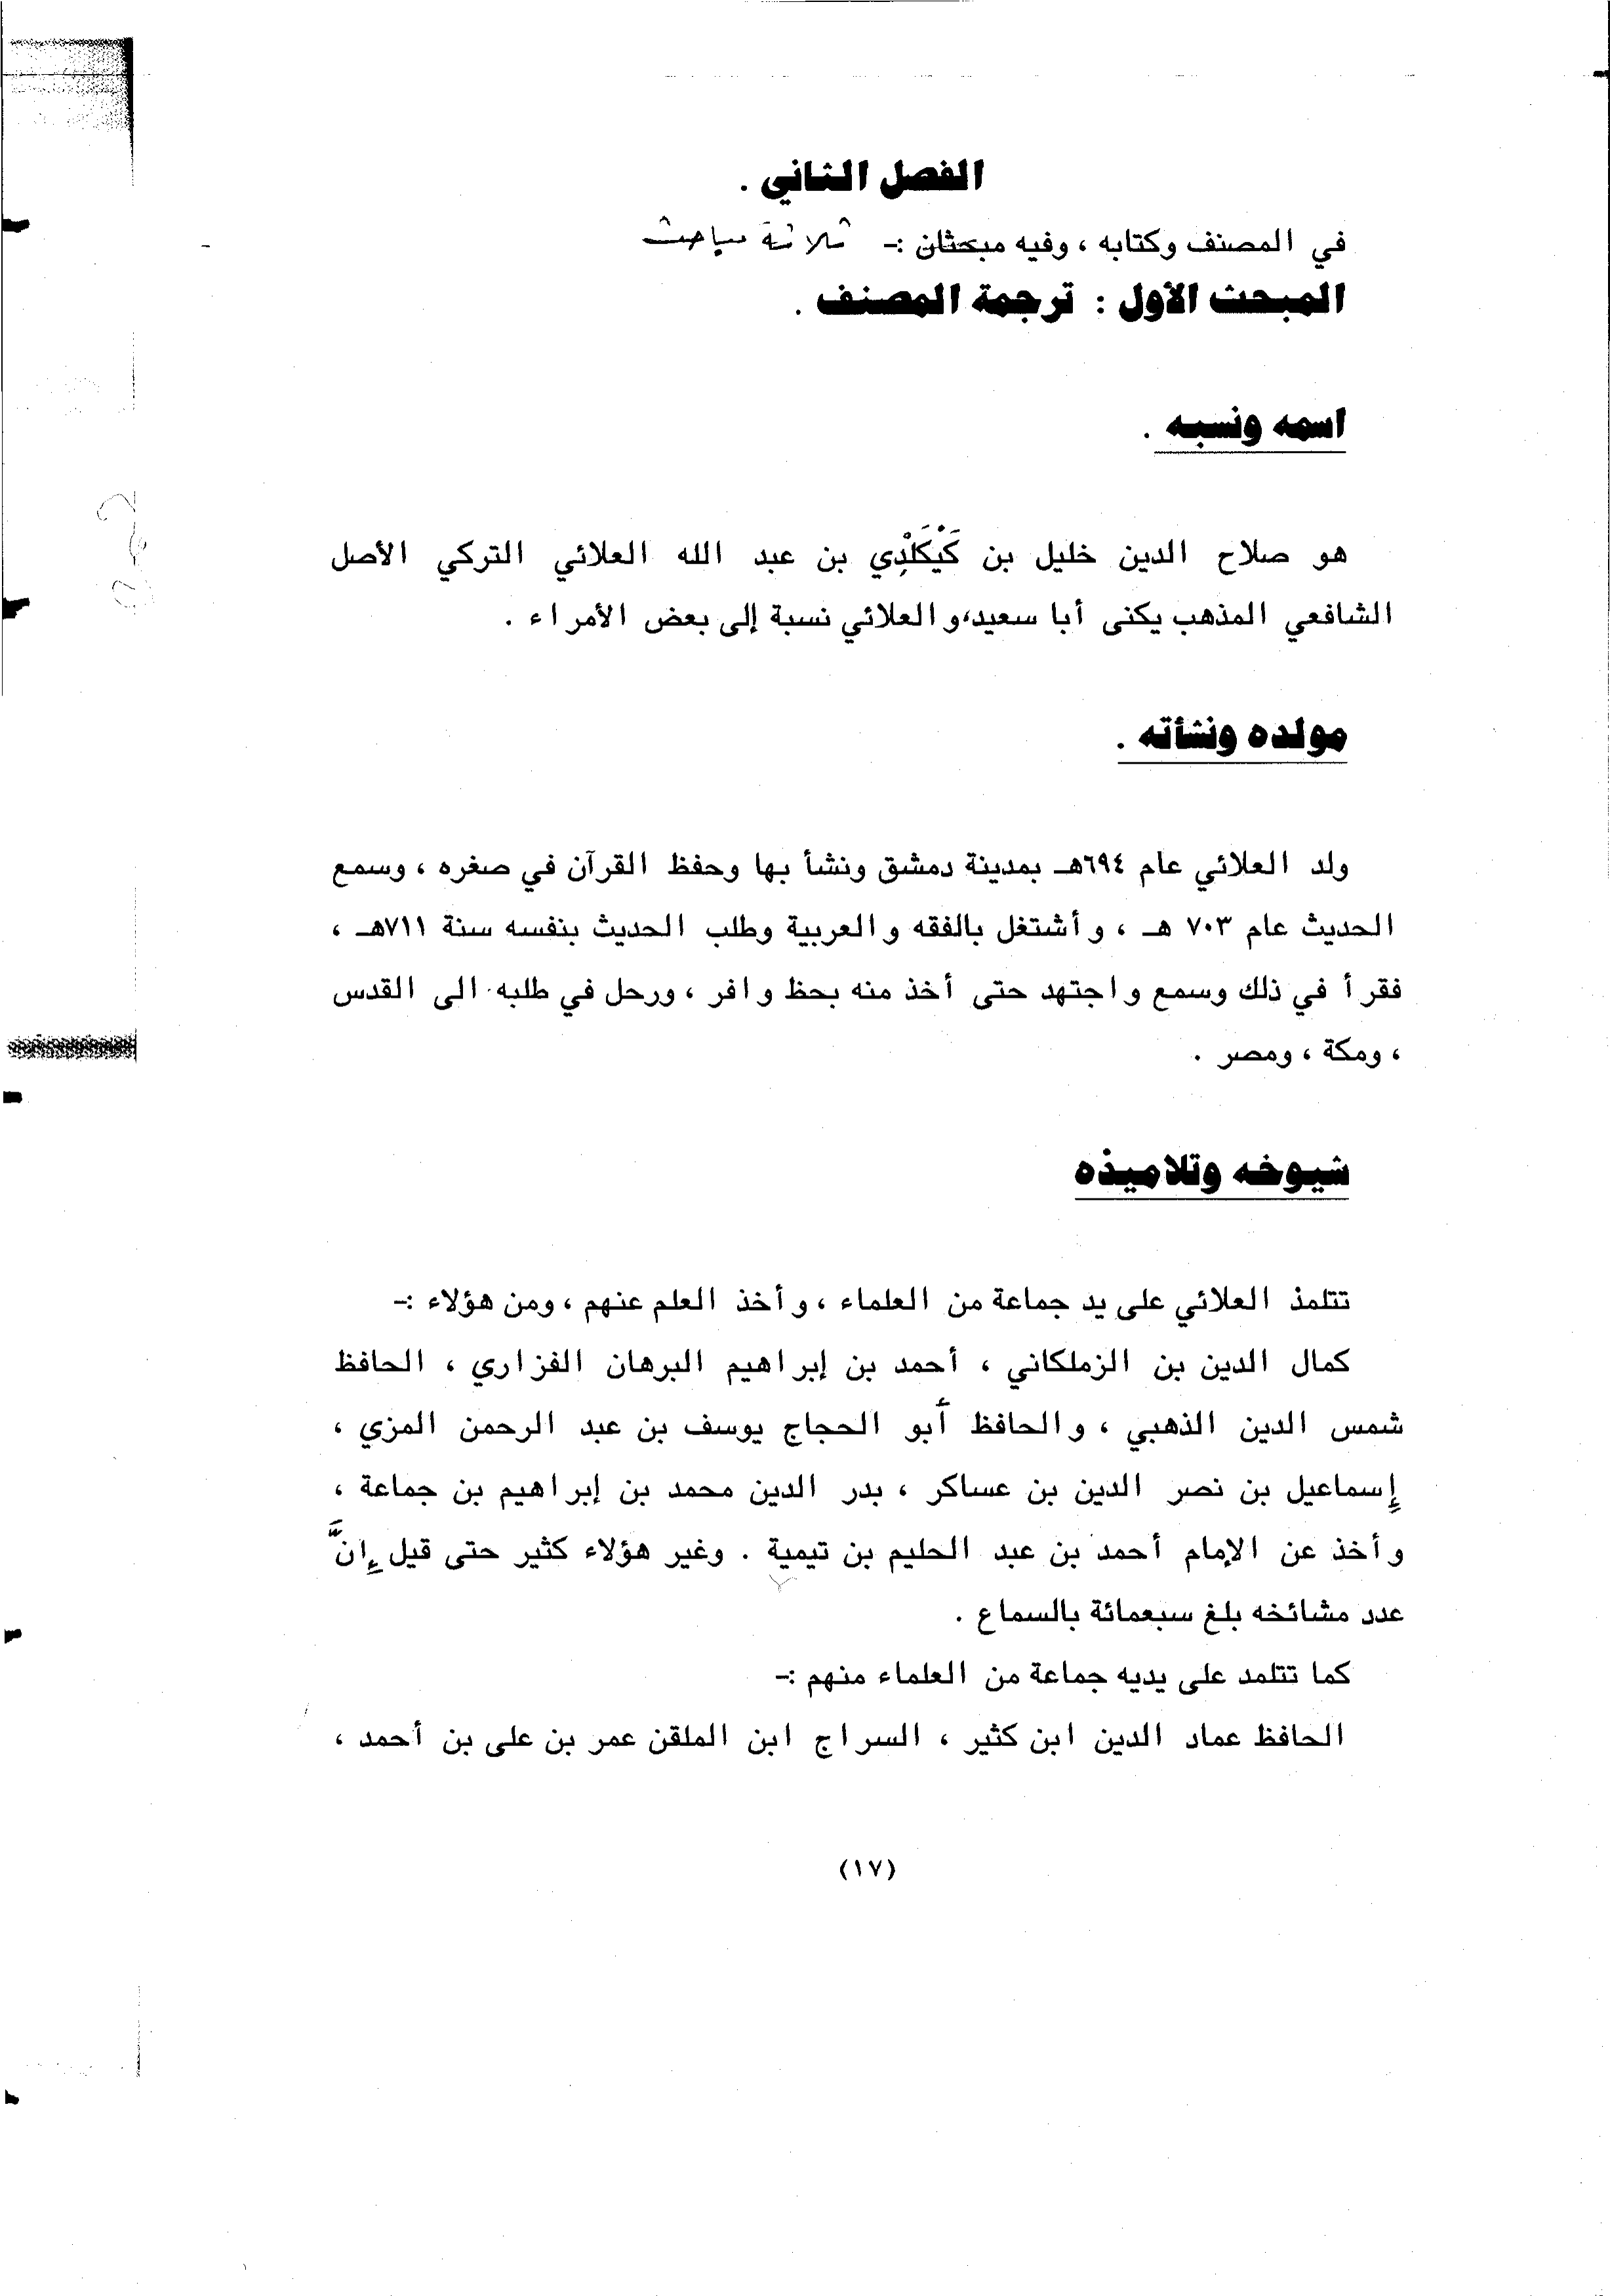 الفصل الثاني .
في المصنف وكتابه ، وفيه مبحثان :- ثلاثة مباحث
المبحث الأول : ترجمة المصنف .
اسمه ونسبه .
هو صلاح الدين خليل بن كَيْكَلْدِي بن عبد الله العلائي التركي الأصل
الشافعي المذهب يكنى أبا سعيد، والعلائي نسبة إلى بعض الأمراء .
مولده ونشأته .
ولد العلائي عام ٦٩٤هـ بمدينة دمشق ونشأ بها وحفظ القرآن في صغره ، وسمع
الحديث عام ٧٠٣ هـ ، وأشتغل بالفقه والعربية وطلب الحديث بنفسه سنة ٧١١هـ ،
فقرأ في ذلك وسمع واجتهد حتى أخذ منه بحظ وافر ، ورحل في طلبه الى القدس
، ومكة ، ومصر .
شيوخه وتلاميذه
تتلمذ العلائي على يد جماعة من العلماء ، وأخذ العلم عنهم ، ومن هؤلاء :-
كمال الدين بن الزملكاني ، أحمد بن إبراهيم البرهان الفزاري ، الحافظ
شمس الدين الذهبي ، والحافظ أبو الحجاج يوسف بن عبد الرحمن المزي ،
إسماعيل بن نصر الدين بن عساكر ، بدر الدين محمد بن إبراهيم بن جماعة ،
وأخذ عن الإمام أحمد بن عبد الحليم بن تيمية . وغير هؤلاء كثير حتى قيل إنَّ
عدد مشائخه بلغ سبعمائة بالسماع .
كما تتلمد على يديه جماعة من العلماء منهم :-
الحافظ عماد الدين ابن كثير ، السراج ابن الملقن عمر بن على بن أحمد ،
(١٧)